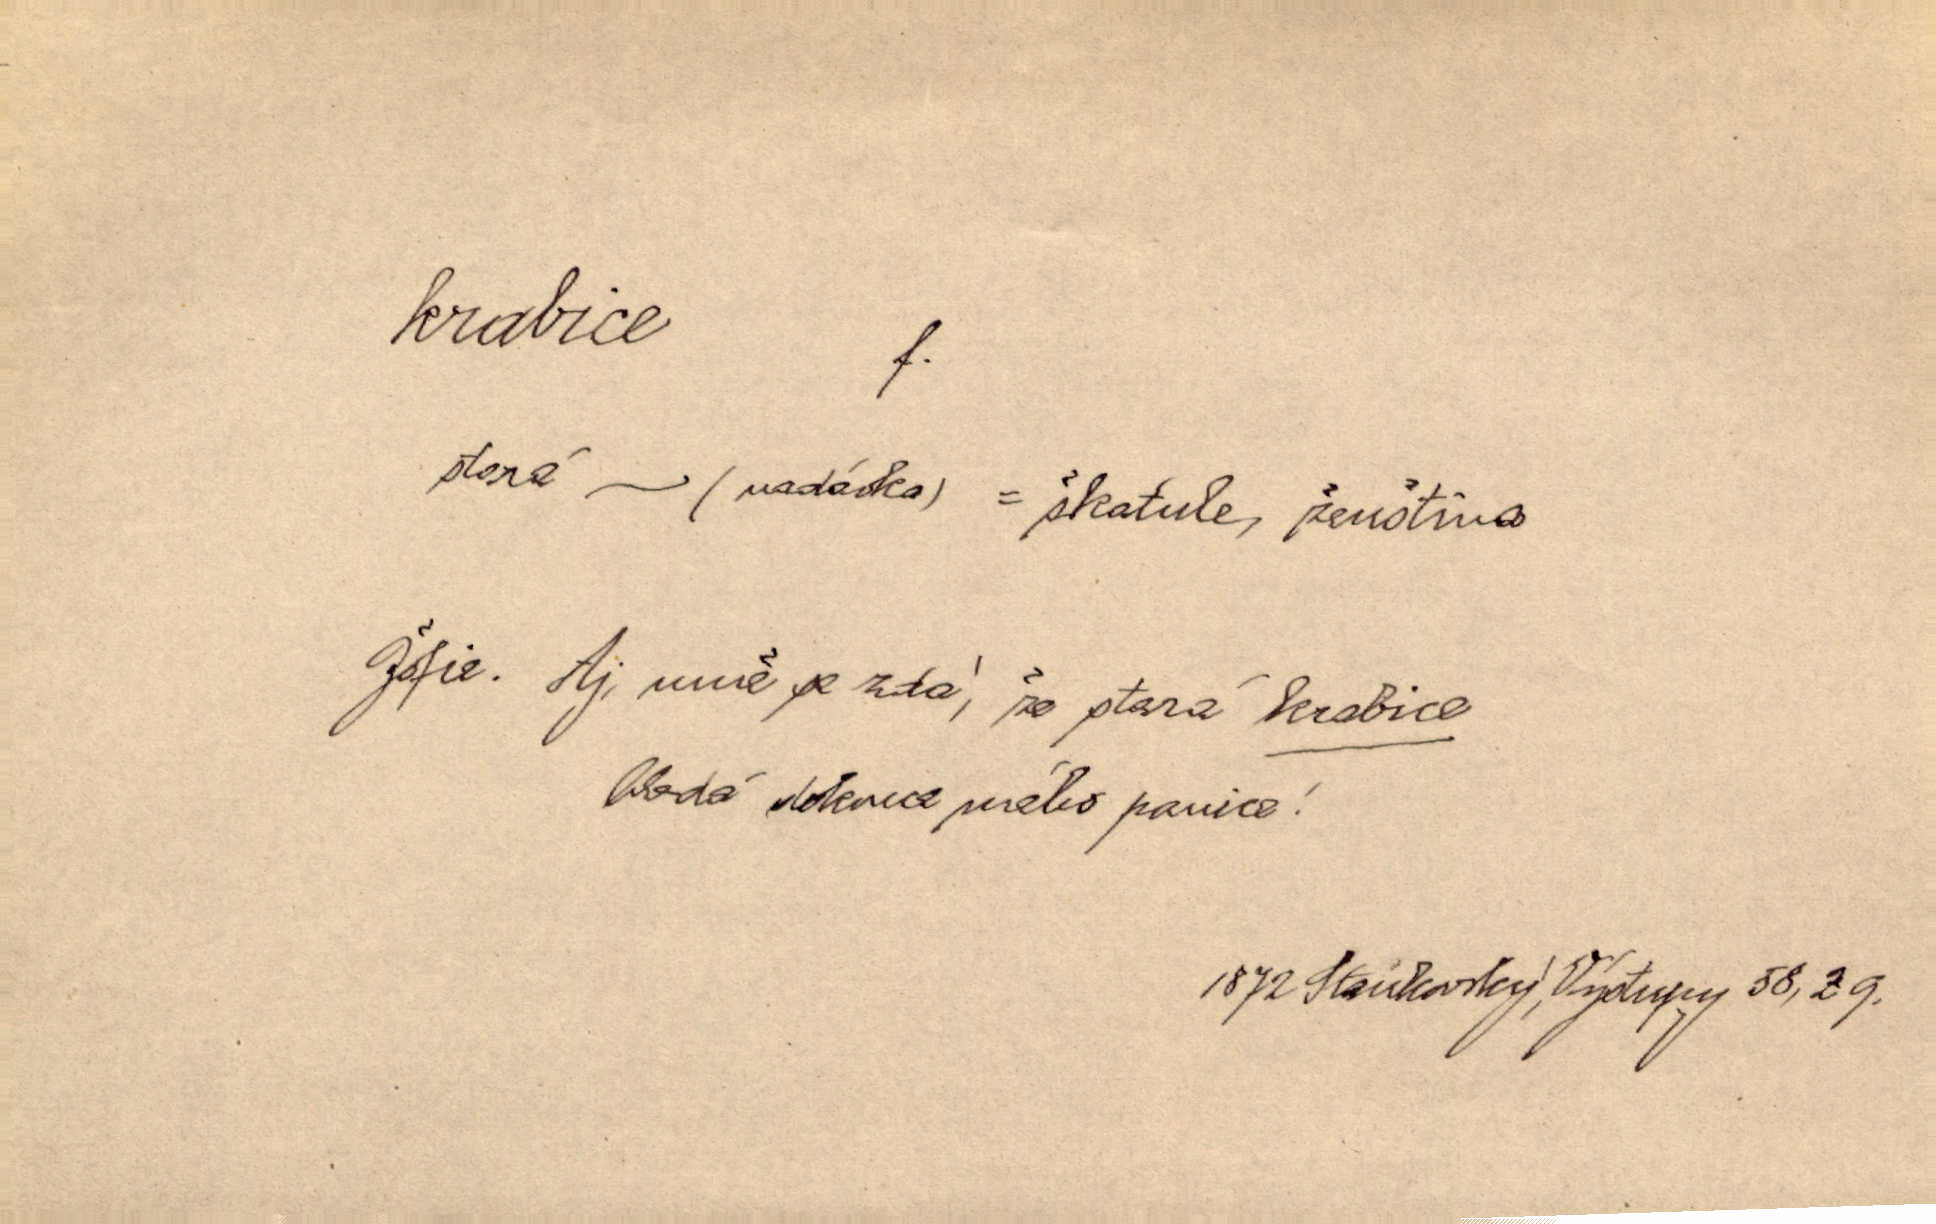 krabice f.
stará ~ (nadávka) = škatule, ženština
Žofie. Aj, mně se zdá, že stará krabice
hledá mého panice!
1872 Stankovský, Výstupy 58, 29.